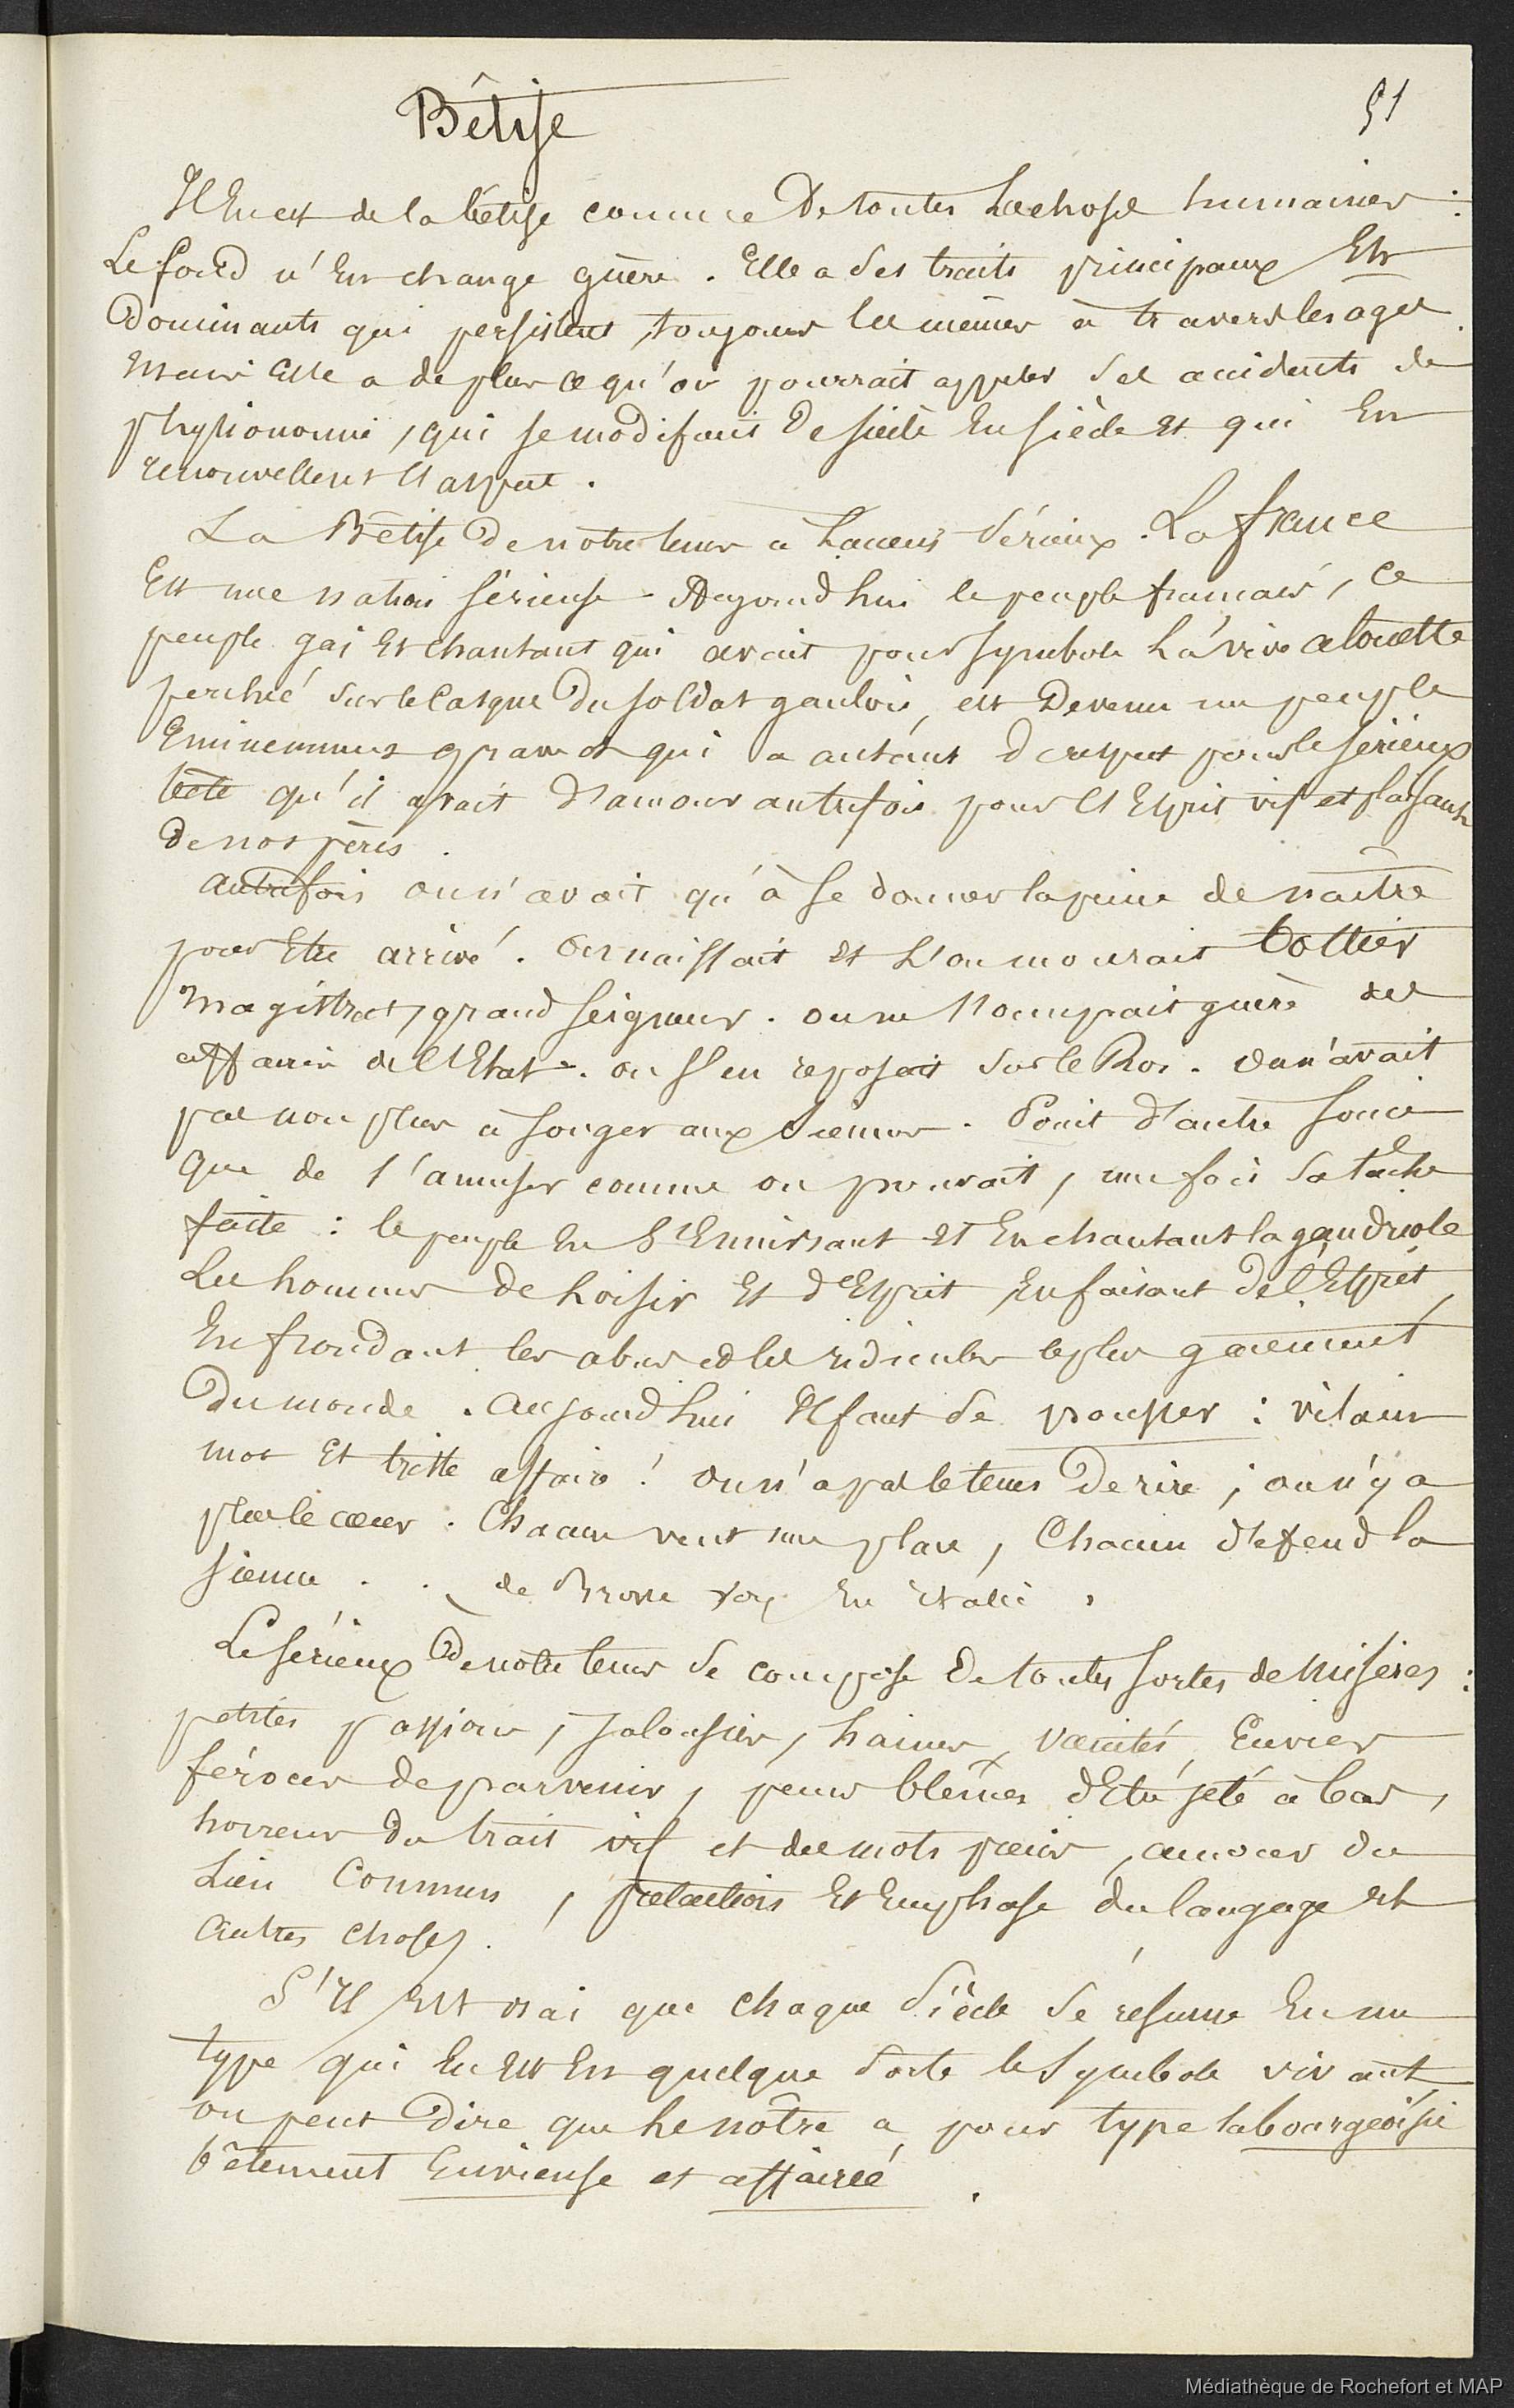 Bêtise
51
Il En est de la bêtise comme De toutes Les choses humaines :
Le fond n'En change guère. Elle a des traits principaux Et
Dominants qui persistent, toujours les mêmes à travers les ages
Mais Elle a de plus ce qu'on pourrait appeler des accidents de
physionomie, qui se modifient De siècle En siècle Et qui En
renouvellent l'aspect.
La Bêtise De notre tems a L'accens Sérieux. La france
Est une nation sérieuse. Aujourd'hui le peuple français, ce
peuple gai Et chantant qui avait pour symbole La vive alouette
perchée sur le Casque Du soldat gaulois, est Devenu un peuple
Eminemment grave et qui a autant De respect pour le sérieux
bête qu'il avait D'amour autrefois pour l'Esprit vif et plaisant
De nos pères.
autrefois on n'avait qu'à se donner la peine de naître
pour Etre arrivé. On naissait Et L'on mourait bottier
Magistrat, grand seigneur. on ne s'occupait guère des
affaires de l'Etat. on s'en reposait sur le Roi. On n'avait
pas non plus à songer aux siennes. Point d'autre souci
Que de s'amuser comme on pouvait, une fois sa tâche
faite : le peuple En S'Enivrant Et En chantant la gaudriole
Les hommes De Loisir Et d'Esprit En faisant De l'Esprit,
En frondant les abus et les ridicules le plus gaiement
Du monde. Aujourd'hui Il faut se pousser : vilain
mot Et triste affaire ! On n'a pas le tems De rire ; on n'y a
plus le cœur. Chacun veut une place, Chacun défend la
sienne . . de Brosse voy En Italie.
Le sérieux De notre tems se compose De toutes sortes de Misères :
petites passions, jalousies, haines, vanités, Envies
féroces de parvenir, peurs blêmes d'Etre jeté à bas,
horreur du trait vif et des mots fins, amour du
Lieu Commun, prétention Et Emphase du langage Et
Autres choses.
S'Il Est vrai que chaque Siècle se résume En un
type qui En Est En quelque sorte le Symbole vivant,
on peut Dire que Le nôtre a pour type la bourgeoisie
bêtement Envieuse et affairée.
Médiathèque de Rochefort et MAP